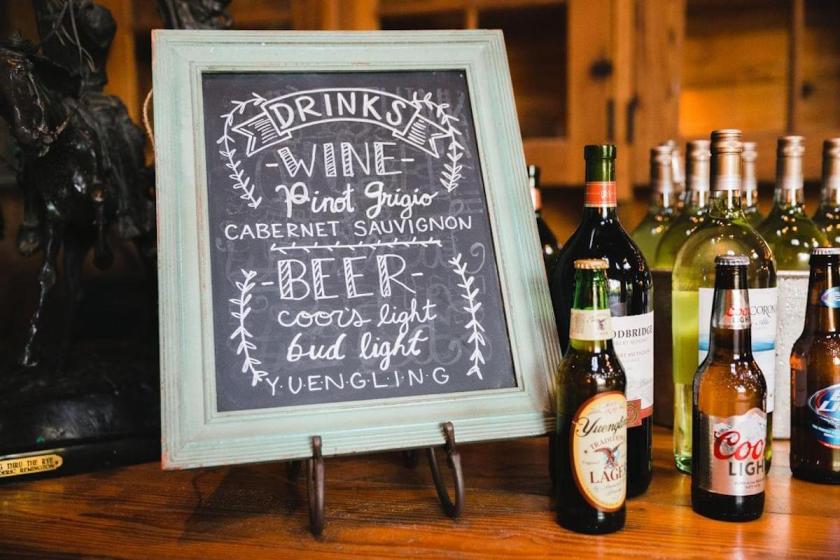 DRINKS
-WINE-
Pinot Grigio
CABERNET SAUVIGNON
-BEER-
coors light
bud light
Y·U·E·N·G·L·I·N·G
Yuengling
TRADITIONAL
LAGER
Coo
LIGHT
LIGHT